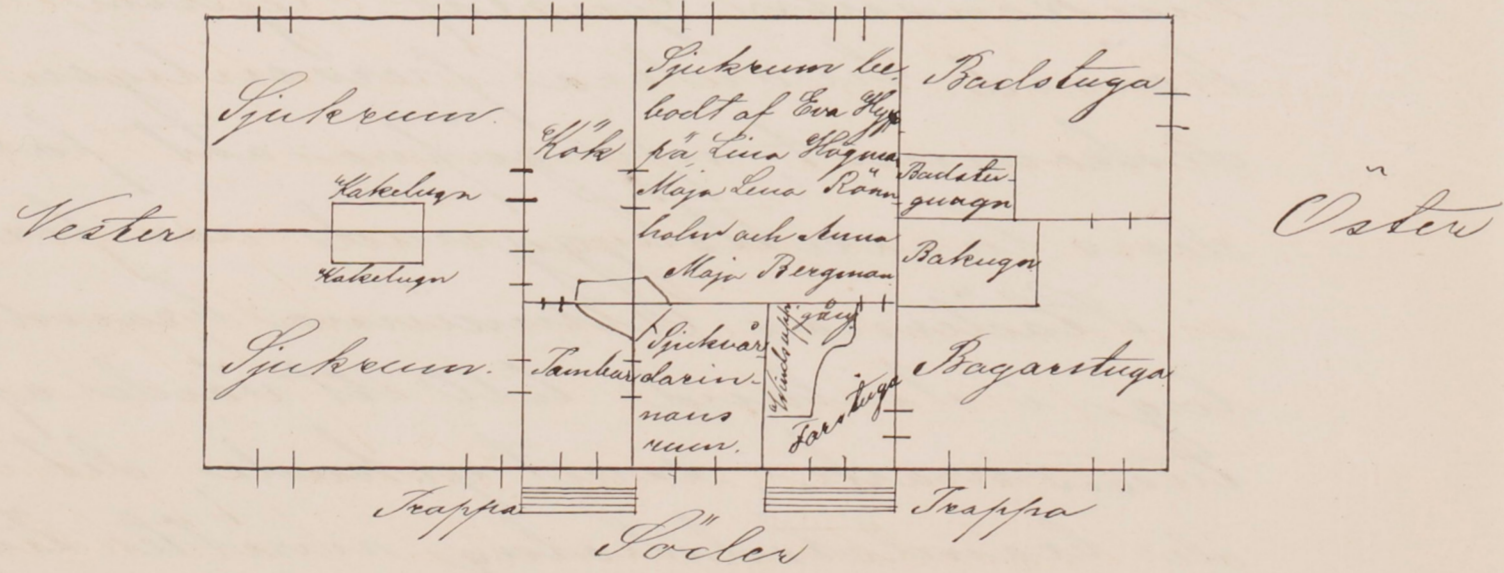 Sjukrum
Kakelugn
Kakelugn
Sjukrum.
Vester
Kök
Tambur
Sjukrum be-
bodt af Eva Hyp-
pä, Lina Högman
Maja Lena Rönn-
holm och Anna
Maja Bergman
Sjukvår-
darin-
nans
rum.
Vindsupp-
gång
Farstuga
Badstuga
Badstu-
gungn
Bakugn
Bagarstuga
Öster
Trappa
Trappa
Söder